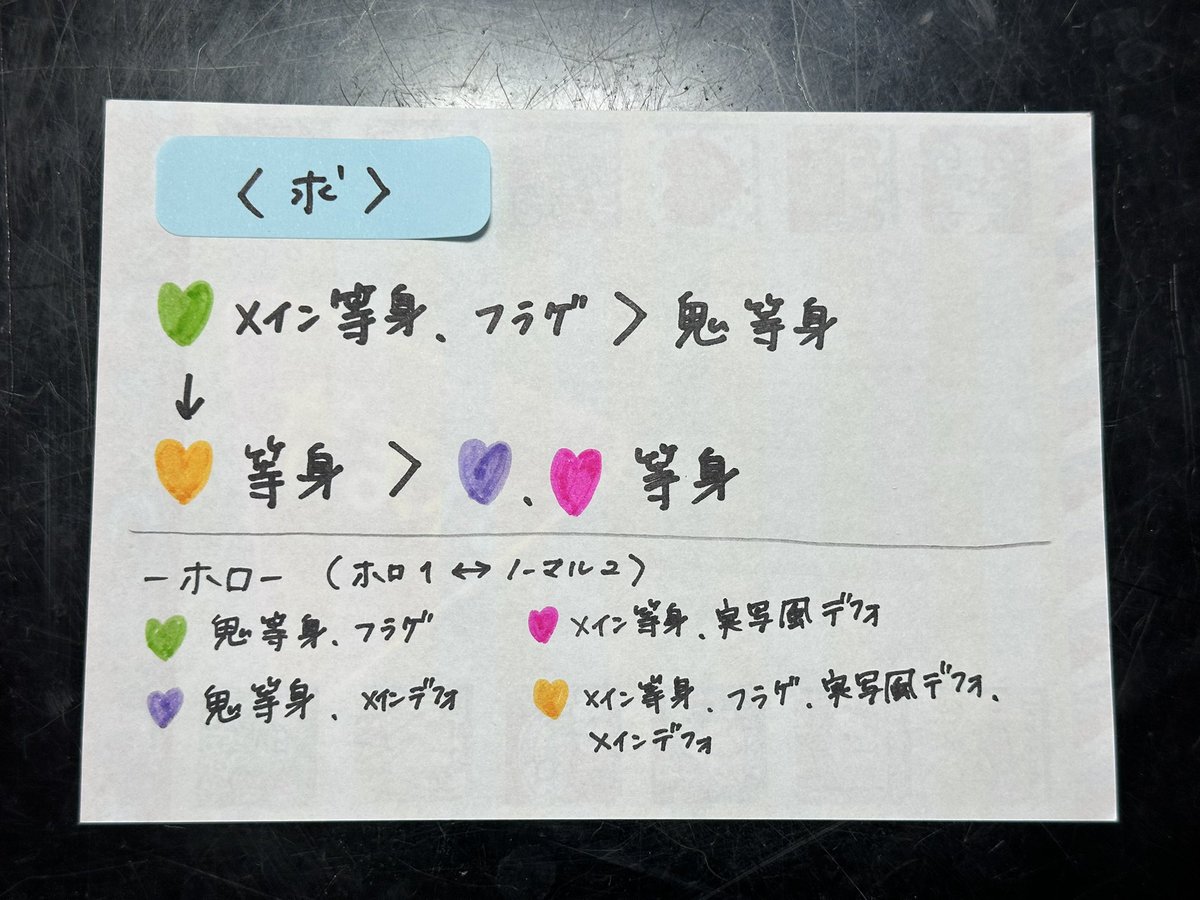 〈求〉
💚メイン等身、フラゲ＞鬼等身
↓
🧡等身＞💜、🩷等身
ーホローー（ホロ1↔ノーマル2）
💚鬼等身、フラゲ
🩷メイン等身、実写風デフォ
💜鬼等身、メインデフォ
🧡メイン等身、フラゲ、実写風デフォ、
メインデフォ